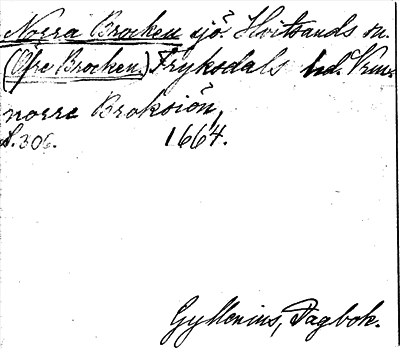 Norra Brocken sjö. Hvitsands sn.
(Öfre Brocken.) Fryksdals hd. Vrml.
norre Broksiön,
s. 306. 1664.
Gyllenius, Dagbok.